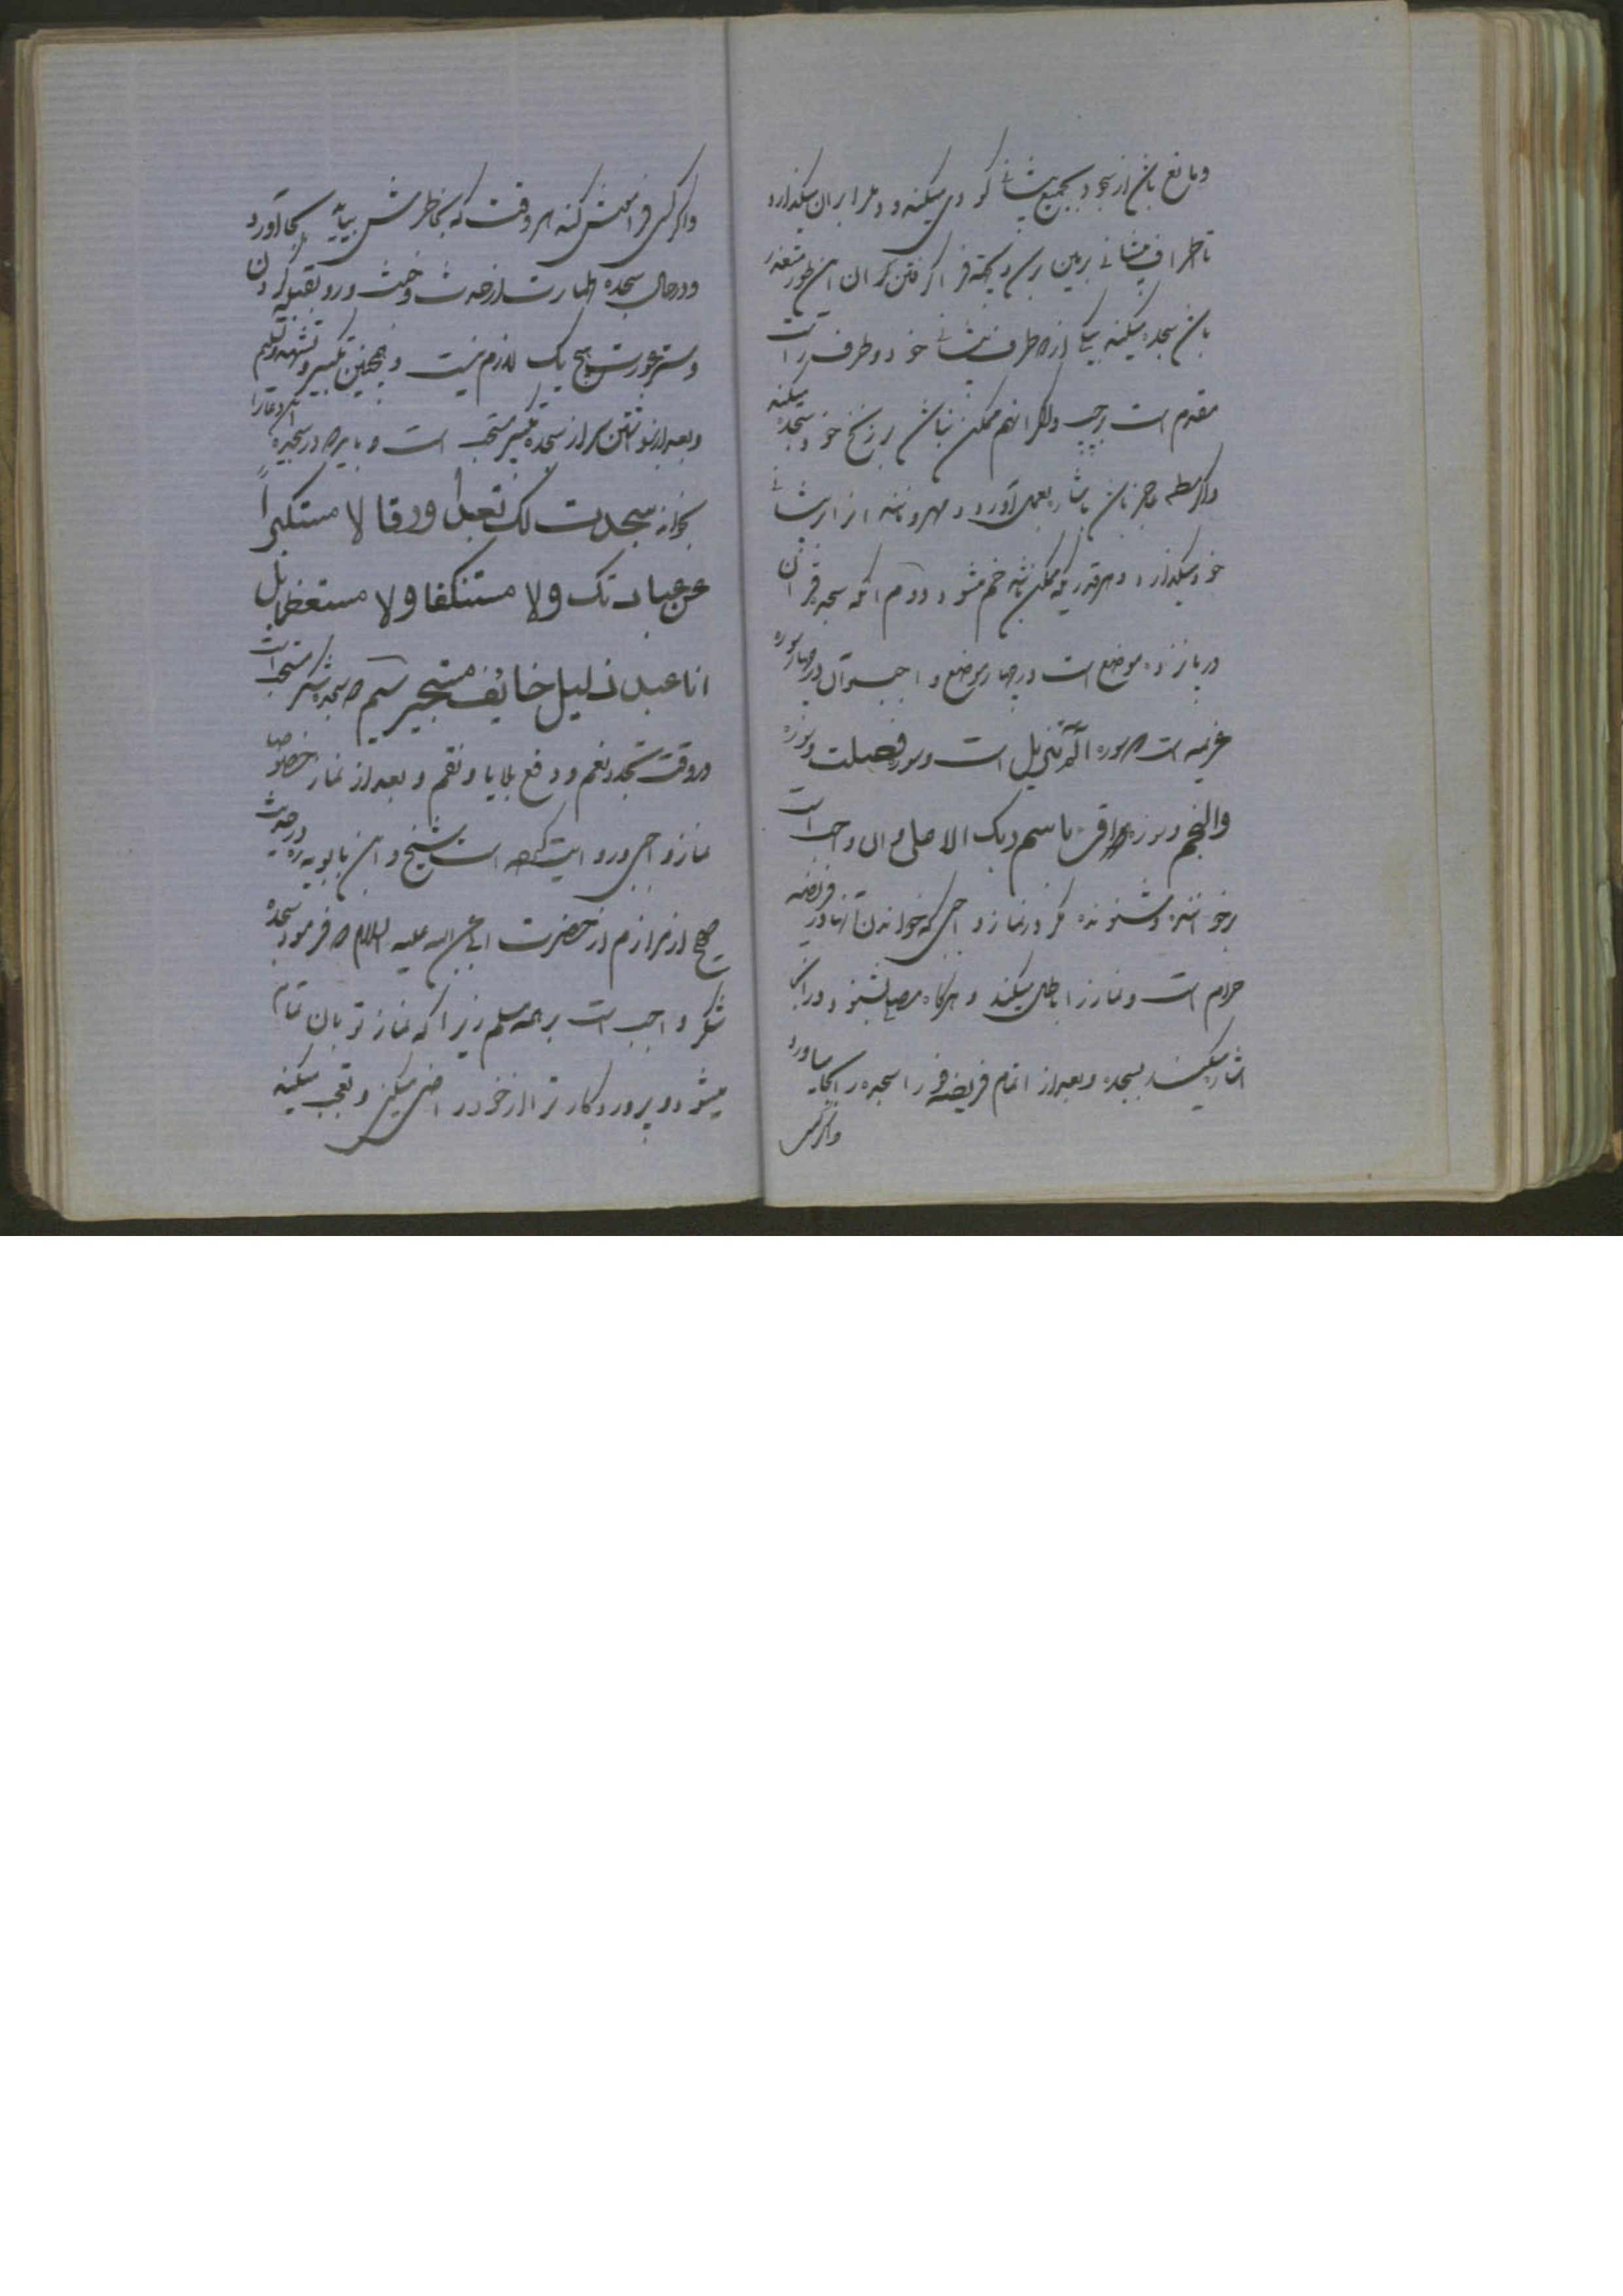 و مانع باشد از سجود بجمیع پیشانی کودی میکند و دمل را بر آن میگذارد
تا اطراف پیشانی بزمین برسد و بجهة فرا گرفتن آن این طور متعذر
باشد سجده میکند بیکی از دو طرف پیشانی خود و طرف راست
مقدم است بر چپ و اگر آنهم ممکن نباشد بر زنخ خود سجده میکند
و اگر عاجز باشد بعمل آورد و مهر و مانند آنرا بر پیشانی
خود میگذارد و هر قدریکه ممکن باشد خم میشود دوم آنکه سجده قرآن
در پانزده موضع است در چهار موضع واجب و آن در چهار سوره
عزیمه است که سوره الم تنزیل است و سوره فصلت و سوره
والنجم و سوره اقرء باسم ربک الاعلی و آن واجب است
بر خواننده و شنونده مگر در نماز واجبی که خواندن آنها در فریضه
حرام است و نماز را باطل میکند و هرگاه مصلی بشنود در آنجا
اشاره میکند بسجده و بعد از اتمام فریضه سجده را بجا میآورد
و اگر کسی
و اگر کسی فراموش کند هر وقت که بخاطرش بیاید بجا آورد
و در حال سجده طهارت از حدث و خبث و رو بقبله کردن
و ستر عورت هیچ یک لازم نیست و همچنین تکبیر و تشهد و تسلیم
و بعد از برداشتن سر از سجده تکبیر مستحب است و باید که در سجده این دعا را
بخواند سجدت لک تعبدا ورقا لا مستکبراً
عن عبادتک ولا مستنکفا ولا مستعظما بل
انا عبد ذلیل خایف مستجیر سیم که سجده شکر مستحب است
در وقت تجدد نعم و دفع بلایا و نقم و بعد از نماز خصوصا
نماز واجبی و روایت کرده است شیخ و ابن بابویه در حدیث
صحیح از مرازم از حضرت ابی عبد الله علیه السلام که فرمود سجده
شکر واجب است بر همه مسلم زیرا که نماز تو بان تمام
میشود و پروردگار ترا از خود راضی میکنی و تعجب میکنند